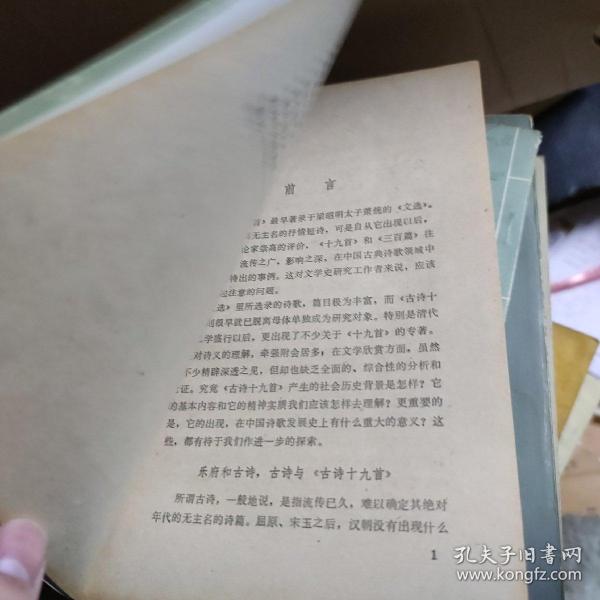 前 言
首》最早著录于梁昭明太子萧统的《文选》。
无主名的抒情短诗，可是自从它出现以后，
论家崇高的评价，《十九首》和《三百篇》往
流传之广，影响之深，在中国古典诗歌领域中
特出的事例。这对文学史研究工作者来说，应该
起注意的问题。
选》里所选录的诗歌，篇目极为丰富，而《古诗十
则很早就已脱离母体单独成为研究对象。特别是清代
学盛行以后，更出现了不少关于《十九首》的专著。
对诗义的理解，牵强附会居多；在文学欣赏方面，虽然
不少精辟深透之见，但却也缺乏全面的、综合性的分析和
证。究竟《古诗十九首》产生的社会历史背景是怎样？它
的基本内容和它的精神实质我们应该怎样去理解？更重要的
是，它的出现，在中国诗歌发展史上有什么重大的意义？这
些，都有待于我们作进一步的探索。
乐府和古诗，古诗与《古诗十九首》
所谓古诗，一般地说，是指流传已久，难以确定其绝对
年代的无主名的诗篇。屈原、宋玉之后，汉朝没有出现什么
1
孔夫子旧书网
www.kongfz.com